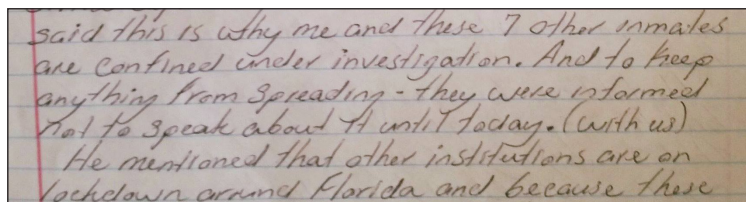 said this is why me and these 7 other inmates
are confined under investigation. And to keep
anything from spreading - they were informed
not to speak about it until today. (with us)
He mentioned that other institutions are on
lockdown around Florida and because these